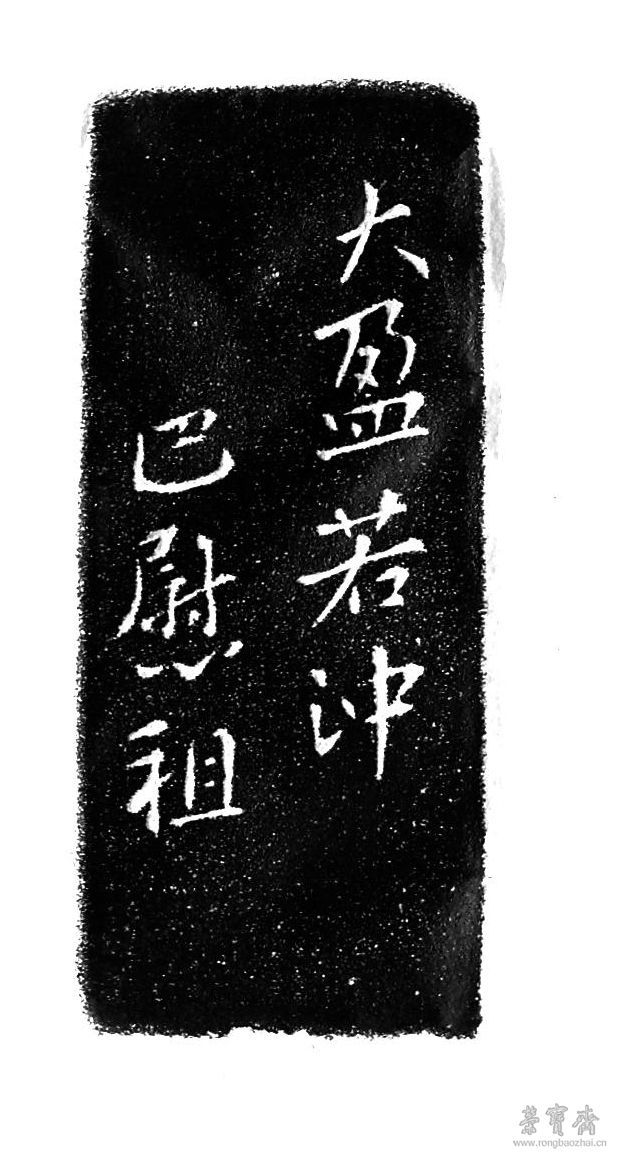 大盈若沖
巴慰祖
榮寶齋
www.rongbaozhai.cn